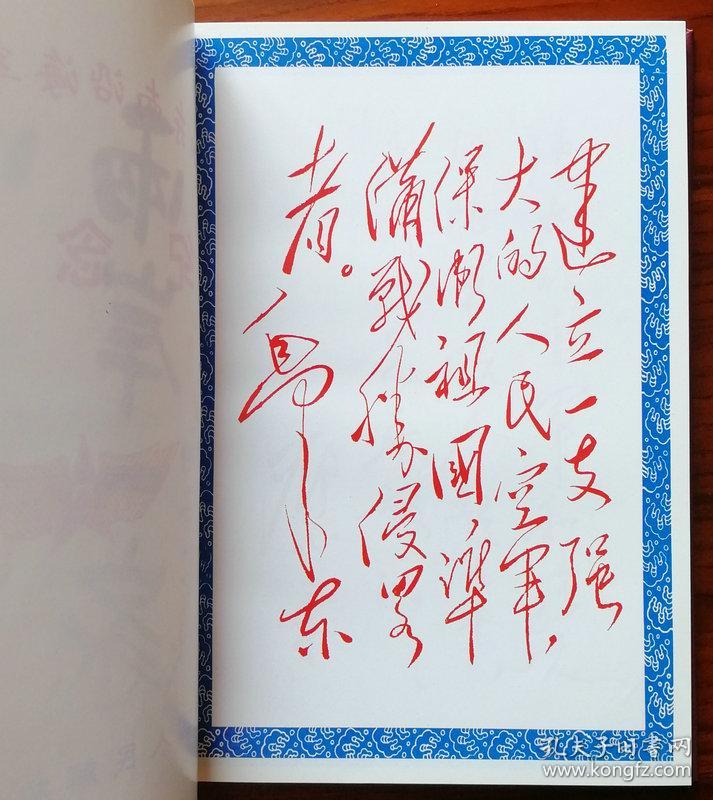 建立一支强
大的人民空军，
保衛祖國準
備戰勝侵畧
者。
毛泽东
孔夫子旧书网
www.kongfz.com